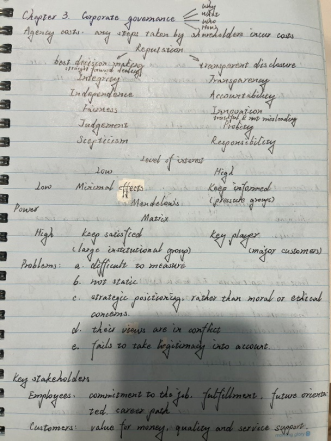 Chapter 3. Corporate governance why what who how
Agency costs: any steps taken by shareholders incur costs
Reputation
best decision making transparent disclosure
straight forward dealings
Integrity Transparency
Independence Accountability
Fairness Innovation
truthful & not misleading
Judgement Probity
Scepticism Responsibility
Level of interest
Low High
Low Minimal effects Keep informed
Power Mendelow's (pressure groups)
Matrix
High Keep satisfied Key player
(large institutional group) (major customers)
Problems: a. difficult to measure
b. not static
c. strategic positioning, rather than moral or ethical
concerns.
d. their views are in conflict
e. fails to take legitimacy into account.
Key stakeholders
Employees: commitment to the job, fulfillment, future orienta
ted, career path
Customers: value for money, quality and service support.